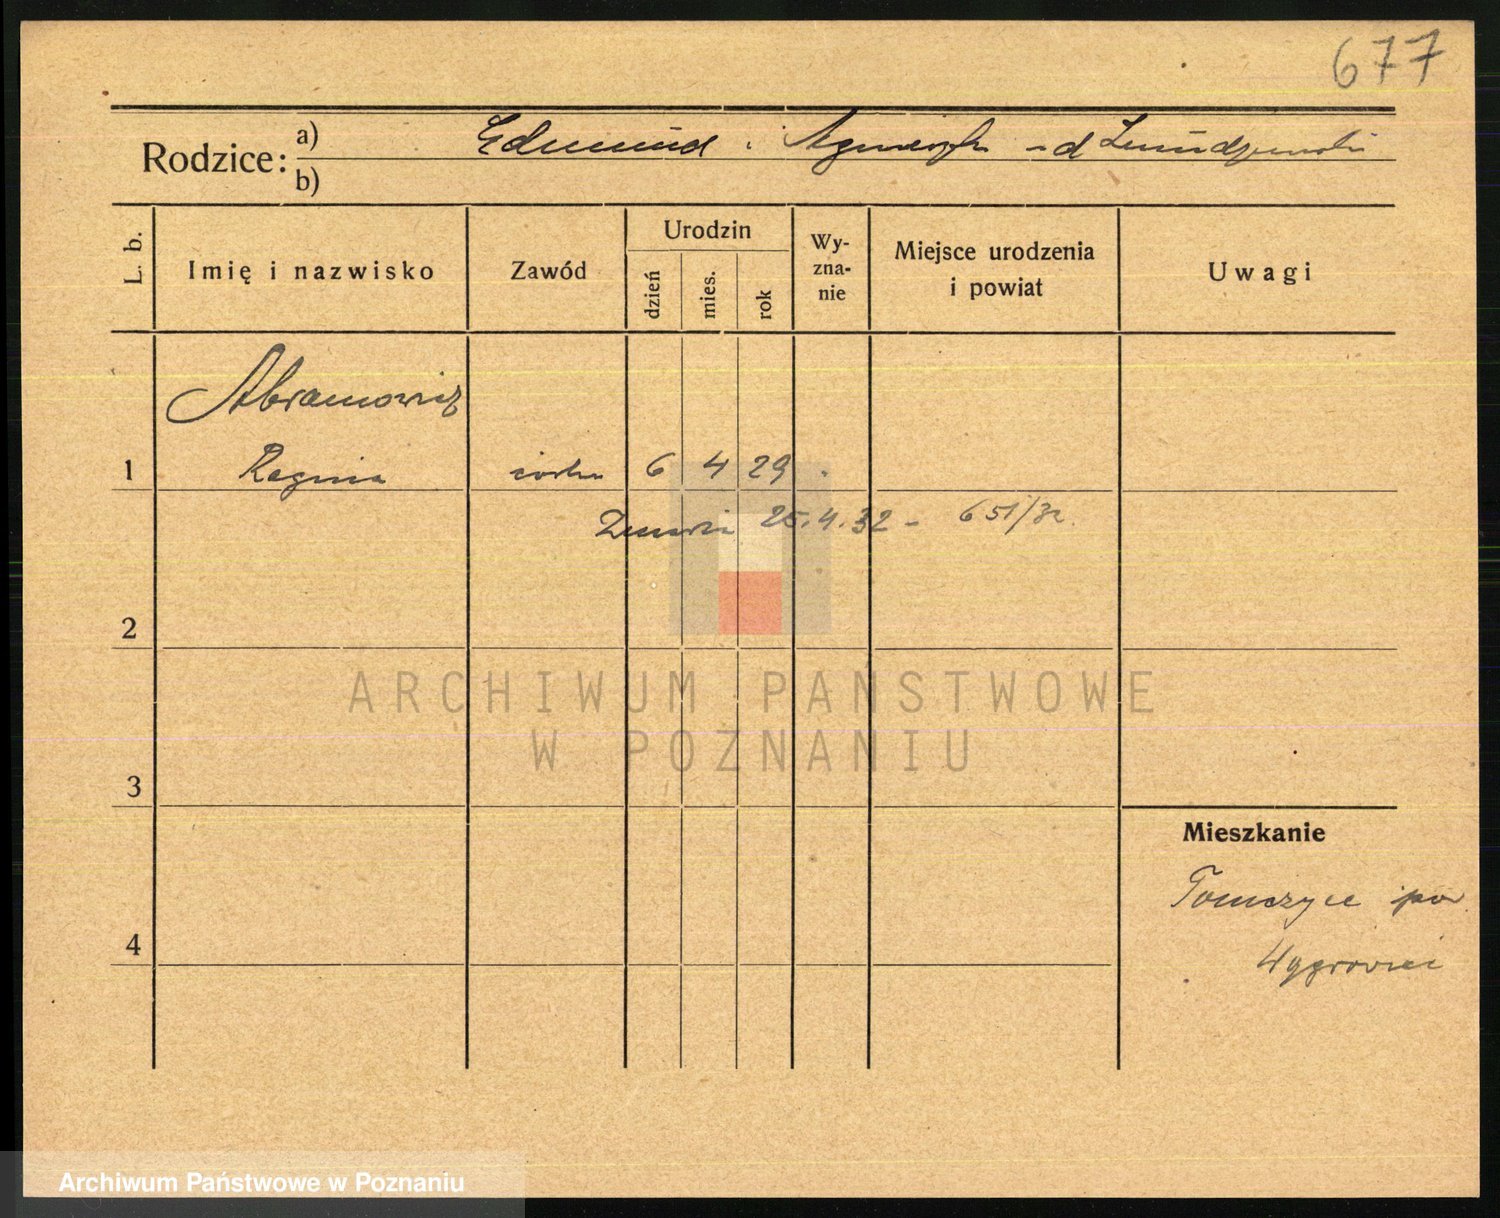 677
Rodzice: a) Edmund i Agnieszka
b)
L. b.
Imię i nazwisko
Zawód
Urodzin
dzień
mies.
rok
Wy-
zna-
nie
Miejsce urodzenia
i powiat
Uwagi
Abramowicz
1 Regina córka 6 4 29
25.4.32 - 651/32
2
ARCHIWUM PAŃSTWOWE
W POZNANIU
3
Mieszkanie
Tomczyce pow
4
Wągrowiec
Archiwum Państwowe w Poznaniu